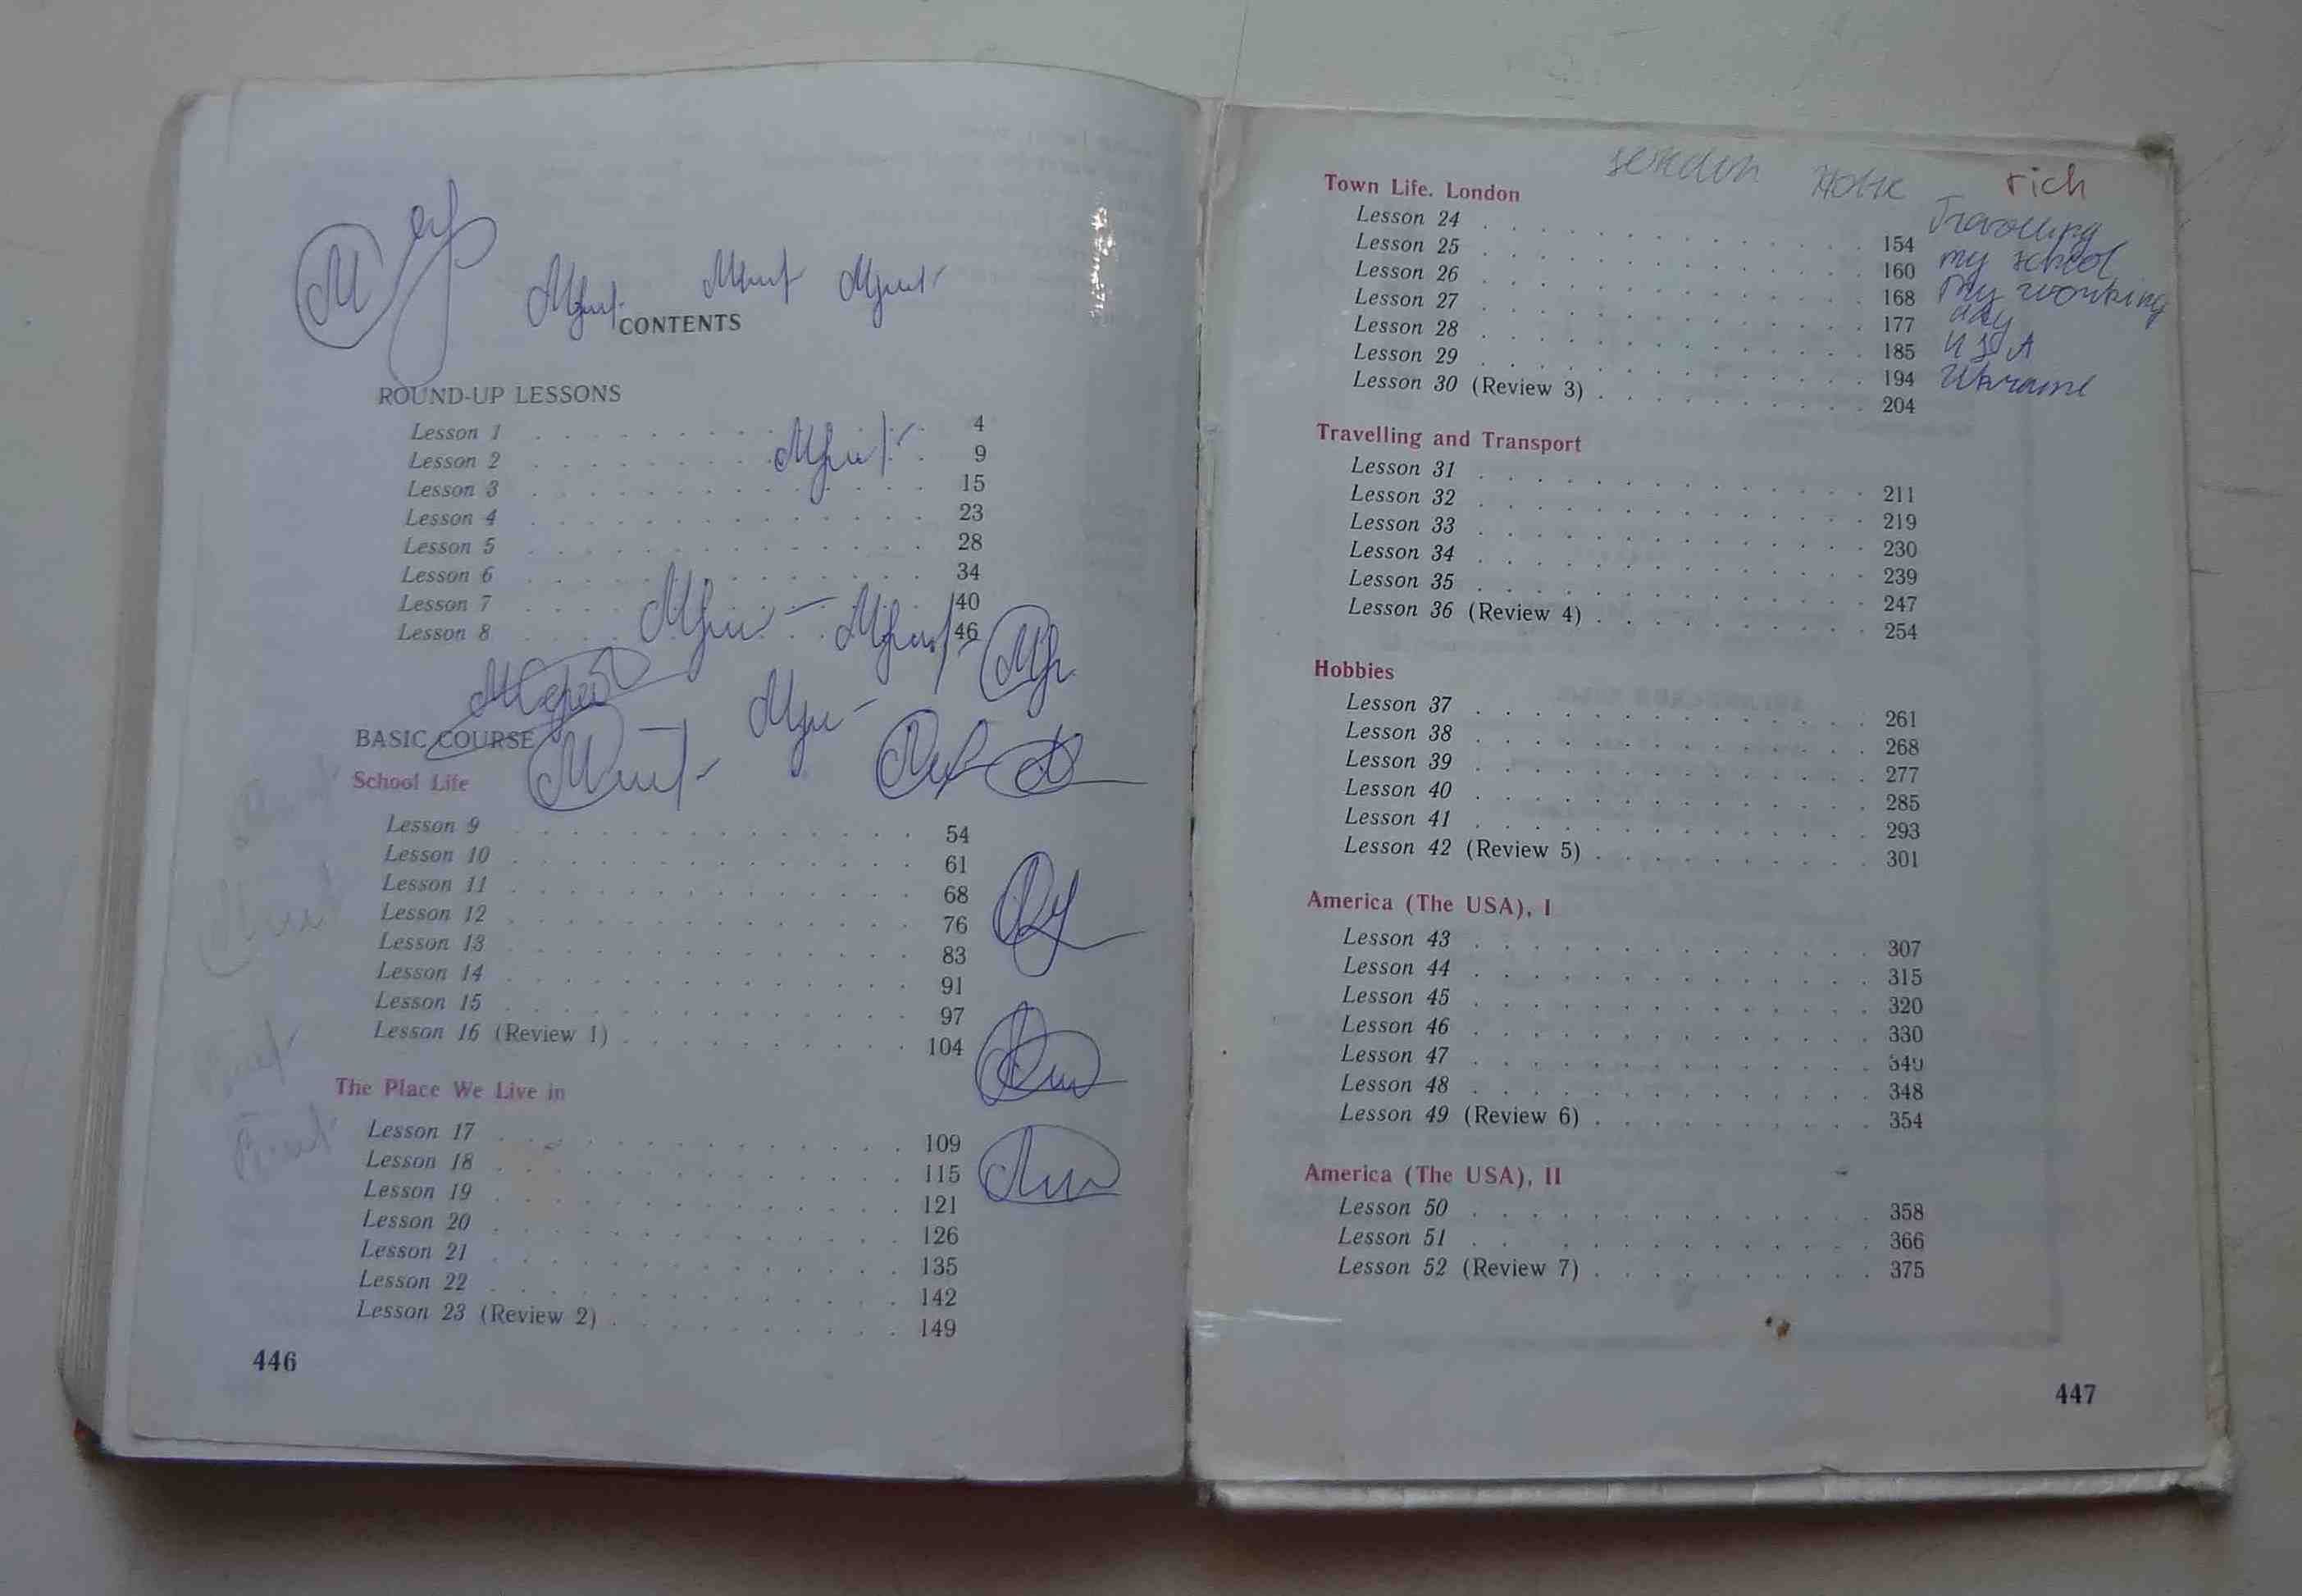 CONTENTS
ROUND-UP LESSONS
Lesson 1 . . . . . . . . . . . . . 4
Lesson 2 . . . . . . . . . . . . . 9
Lesson 3 . . . . . . . . . . . . . 15
Lesson 4 . . . . . . . . . . . . . 23
Lesson 5 . . . . . . . . . . . . . 28
Lesson 6 . . . . . . . . . . . . . 34
Lesson 7 . . . . . . . . . . . . . 40
Lesson 8 . . . . . . . . . . . . . 46
BASIC COURSE
School Life
Lesson 9 . . . . . . . . . . . . . 54
Lesson 10 . . . . . . . . . . . . . 61
Lesson 11 . . . . . . . . . . . . . 68
Lesson 12 . . . . . . . . . . . . . 76
Lesson 13 . . . . . . . . . . . . . 83
Lesson 14 . . . . . . . . . . . . . 91
Lesson 15 . . . . . . . . . . . . . 97
Lesson 16 (Review 1) . . . . . . . . . . 104
The Place We Live in
Lesson 17 . . . . . . . . . . . . . 109
Lesson 18 . . . . . . . . . . . . . 115
Lesson 19 . . . . . . . . . . . . . 121
Lesson 20 . . . . . . . . . . . . . 126
Lesson 21 . . . . . . . . . . . . . 135
Lesson 22 . . . . . . . . . . . . . 142
Lesson 23 (Review 2) . . . . . . . . . . 149
446
rich
Town Life. London
Lesson 24 . . . . . . . . . . . . . 154
Travelling
Lesson 25 . . . . . . . . . . . . . 160
my school
Lesson 26 . . . . . . . . . . . . . 168
my working
day
Lesson 27 . . . . . . . . . . . . . 177
Lesson 28 . . . . . . . . . . . . . 185
USA
Lesson 29 . . . . . . . . . . . . . 194
Ukraine
Lesson 30 (Review 3) . . . . . . . . . . 204
Travelling and Transport
Lesson 31 . . . . . . . . . . . . . 211
Lesson 32 . . . . . . . . . . . . . 219
Lesson 33 . . . . . . . . . . . . . 230
Lesson 34 . . . . . . . . . . . . . 239
Lesson 35 . . . . . . . . . . . . . 247
Lesson 36 (Review 4) . . . . . . . . . . 254
Hobbies
Lesson 37 . . . . . . . . . . . . . 261
Lesson 38 . . . . . . . . . . . . . 268
Lesson 39 . . . . . . . . . . . . . 277
Lesson 40 . . . . . . . . . . . . . 285
Lesson 41 . . . . . . . . . . . . . 293
Lesson 42 (Review 5) . . . . . . . . . . 301
America (The USA), I
Lesson 43 . . . . . . . . . . . . . 307
Lesson 44 . . . . . . . . . . . . . 315
Lesson 45 . . . . . . . . . . . . . 320
Lesson 46 . . . . . . . . . . . . . 330
Lesson 47 . . . . . . . . . . . . . 340
Lesson 48 . . . . . . . . . . . . . 348
Lesson 49 (Review 6) . . . . . . . . . . 354
America (The USA), II
Lesson 50 . . . . . . . . . . . . . 358
Lesson 51 . . . . . . . . . . . . . 366
Lesson 52 (Review 7) . . . . . . . . . . 375
447